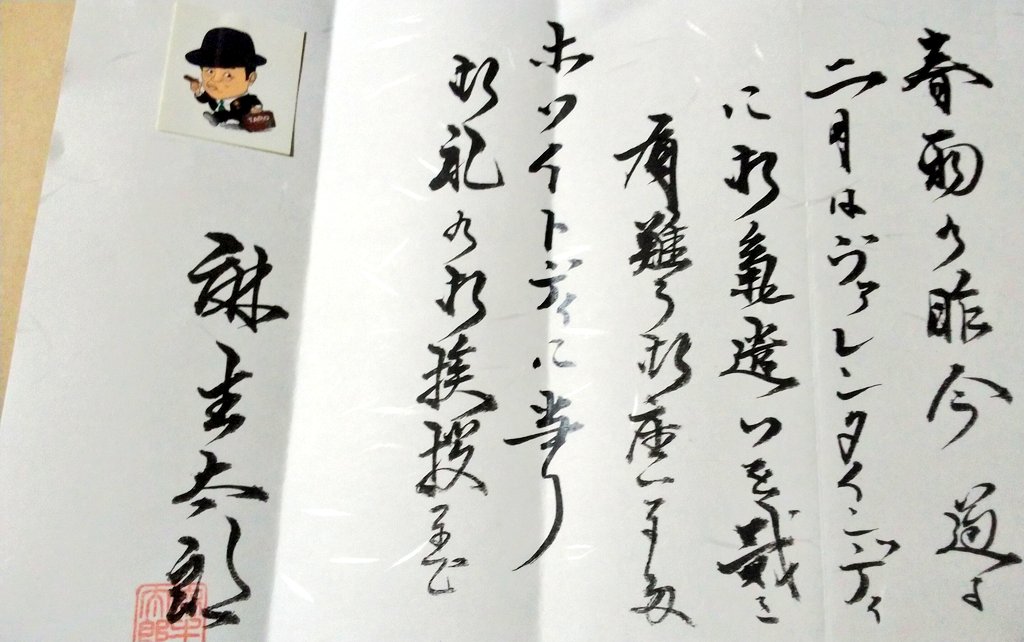 春雨の昨今
二月はヴァレンタインディ
に御氣遣いを戴き
有難う御座いました
ホワイトディに当り
御礼の御挨拶まで
麻生太郎
TARO